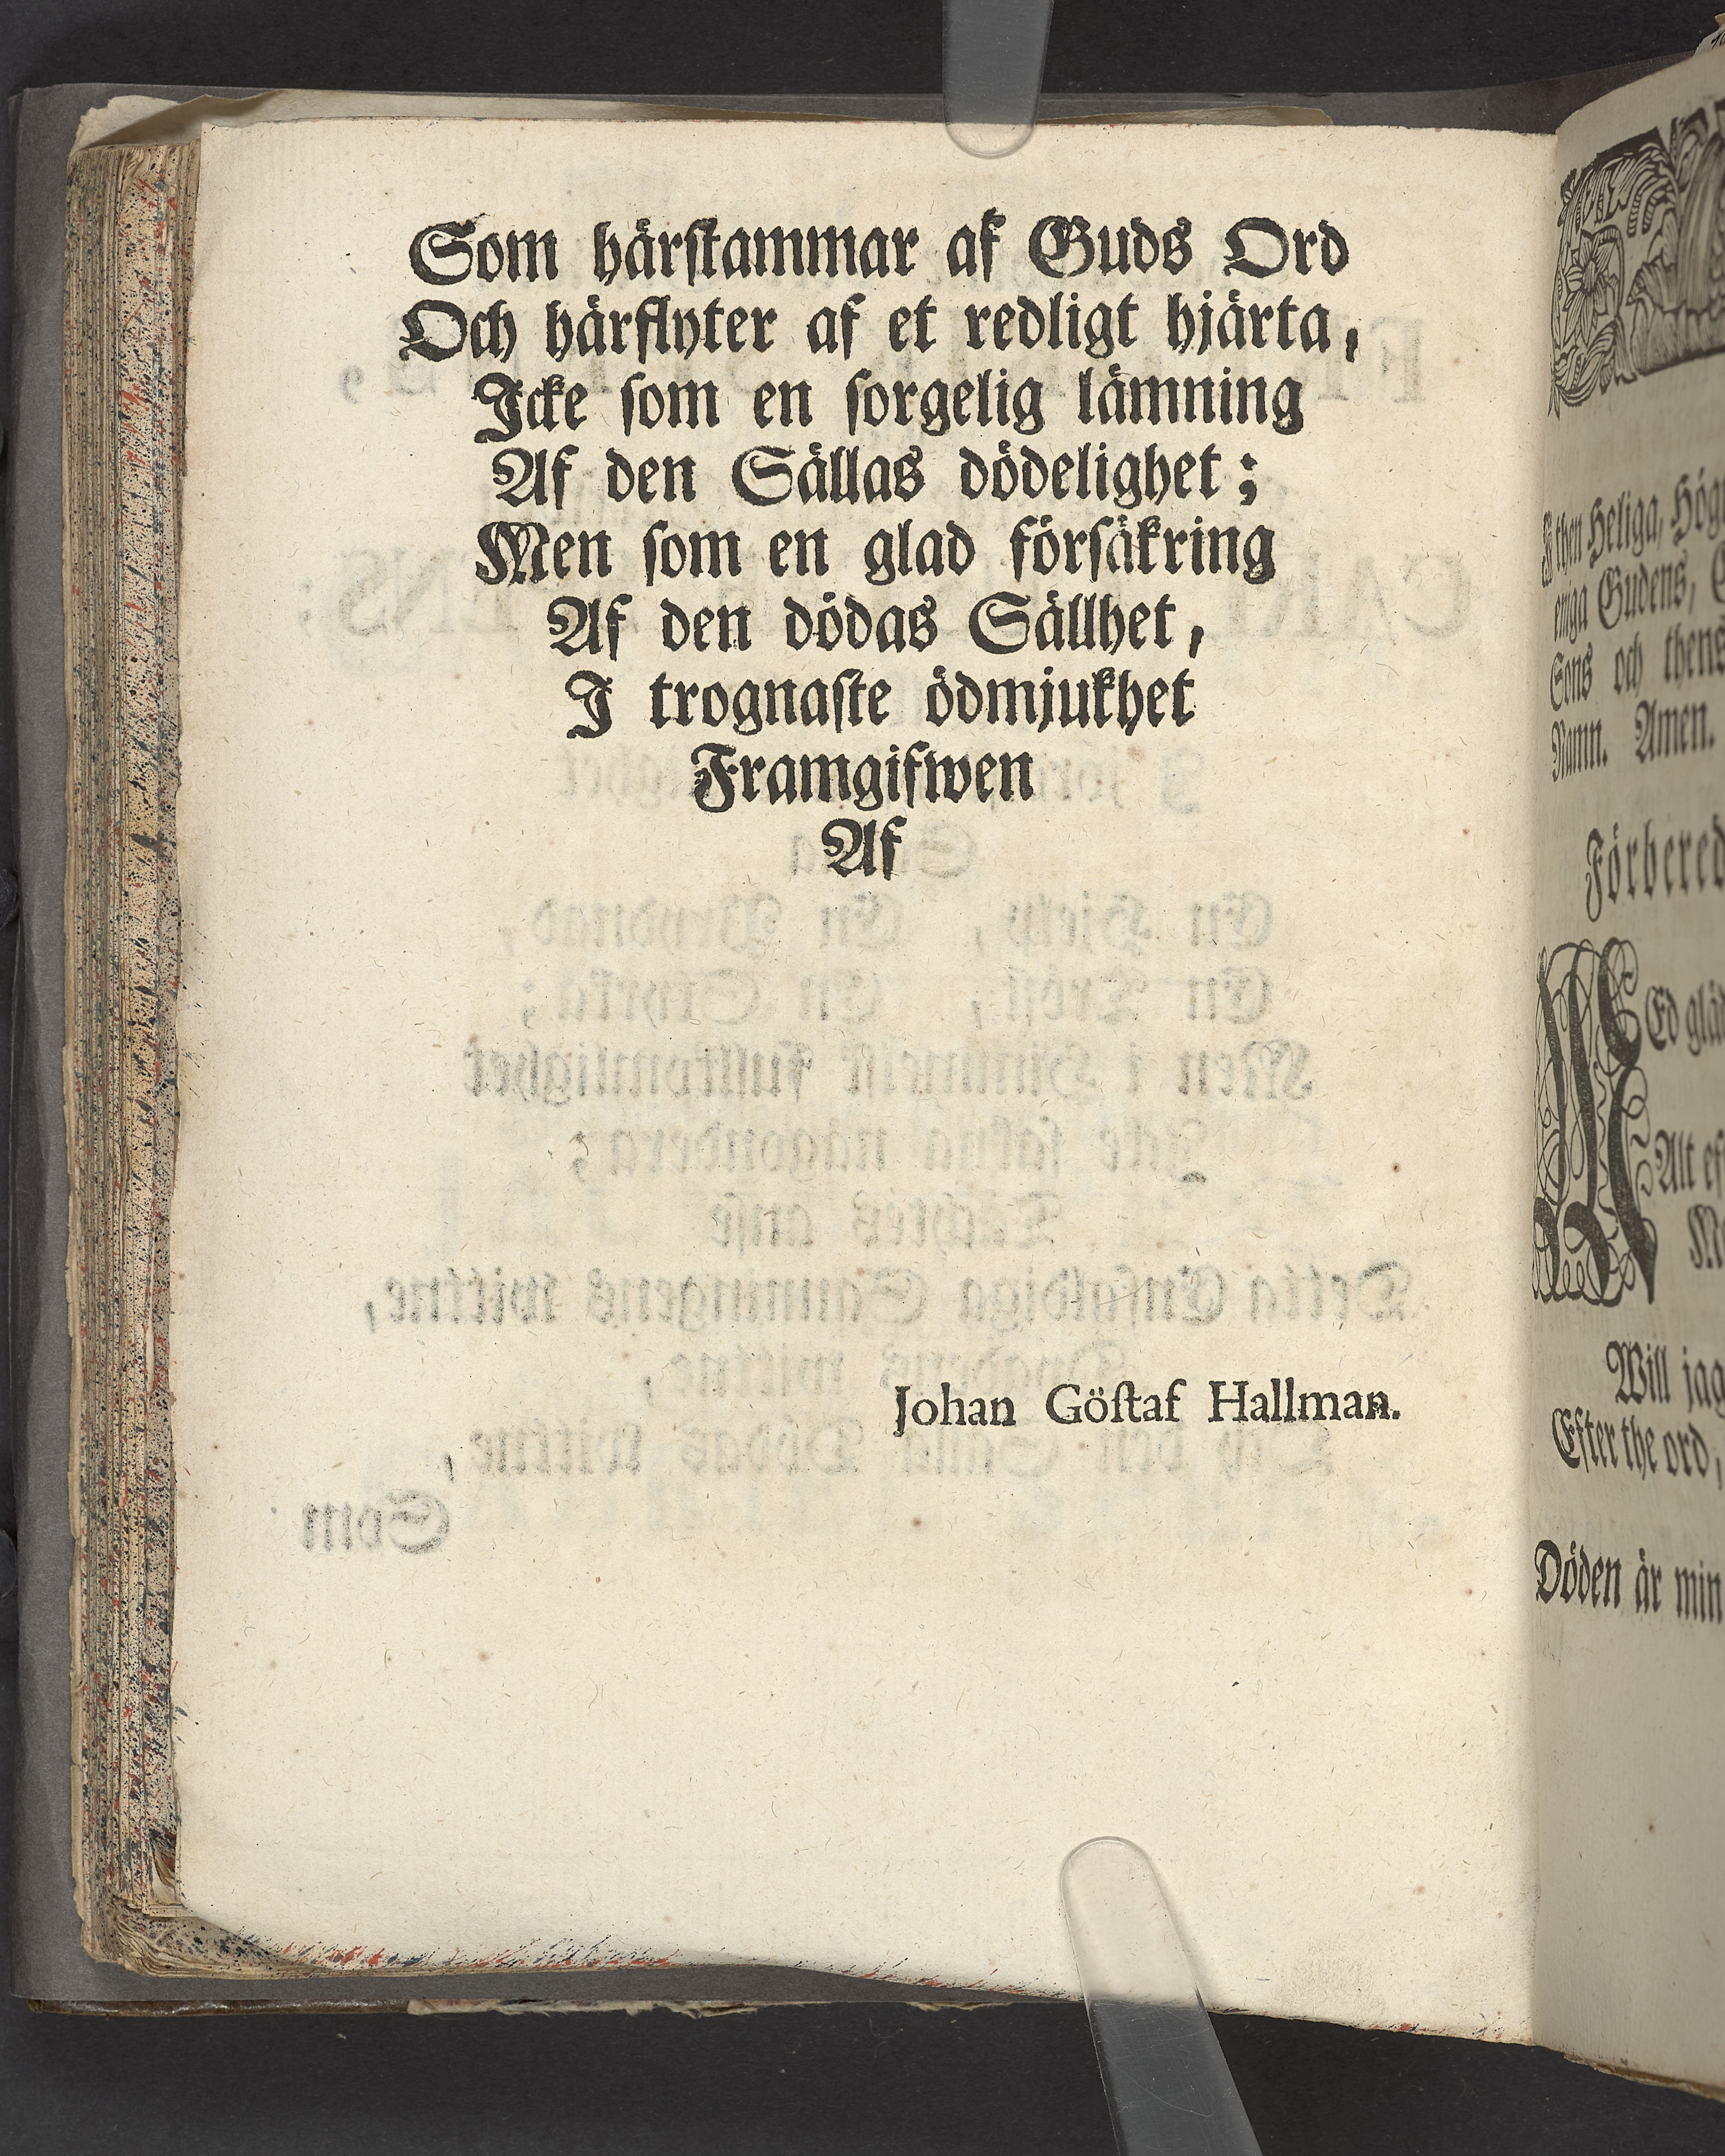 Som härstammar af Guds Ord
Och härflyter af et redligt hjärta,
Icke som en sorgelig lämning
Af den Sällas dödelighet;
Men som en glad försäkring
Af den dödas Sällhet,
I trognaste ödmjukhet
Framgifwen
Af
Johan Göstaf Hallman.
I then Heliga, Hög
eniga Gudens,
Sons och thens
Namn. Amen.
Förbered
MEd glä
Alt ef
Will jag
Efter the ord,
Döden är min